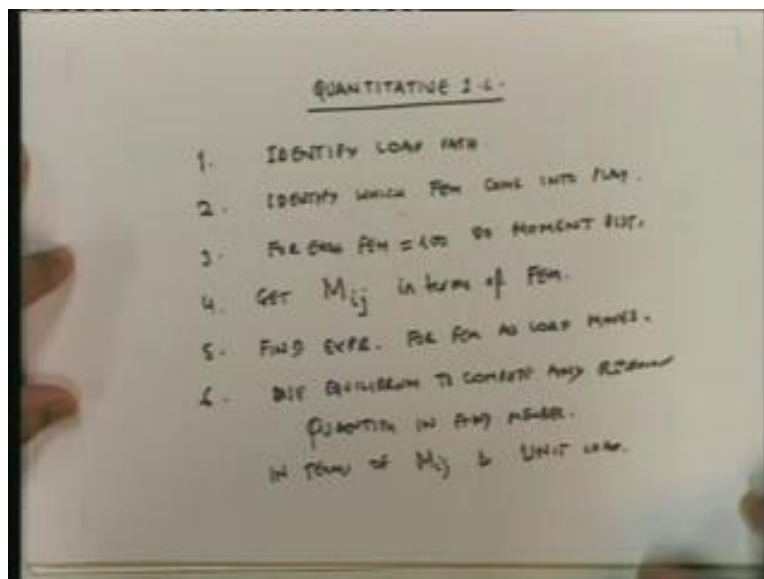 QUANTITATIVE I.L.
1. IDENTIFY LOAD PATH
2. IDENTIFY WHICH FEM COME INTO PLAY.
3. FOR EACH FEM = 100 DO MOMENT DIST.
4. GET Mij in terms of FEM.
5. FIND EXPR. FOR FEM AS LOAD MOVES.
6. USE EQUILIBRIUM TO COMPUTE ANY
QUANTITY IN ANY MEMBER.
IN TERMS OF Mij & UNIT LOAD.